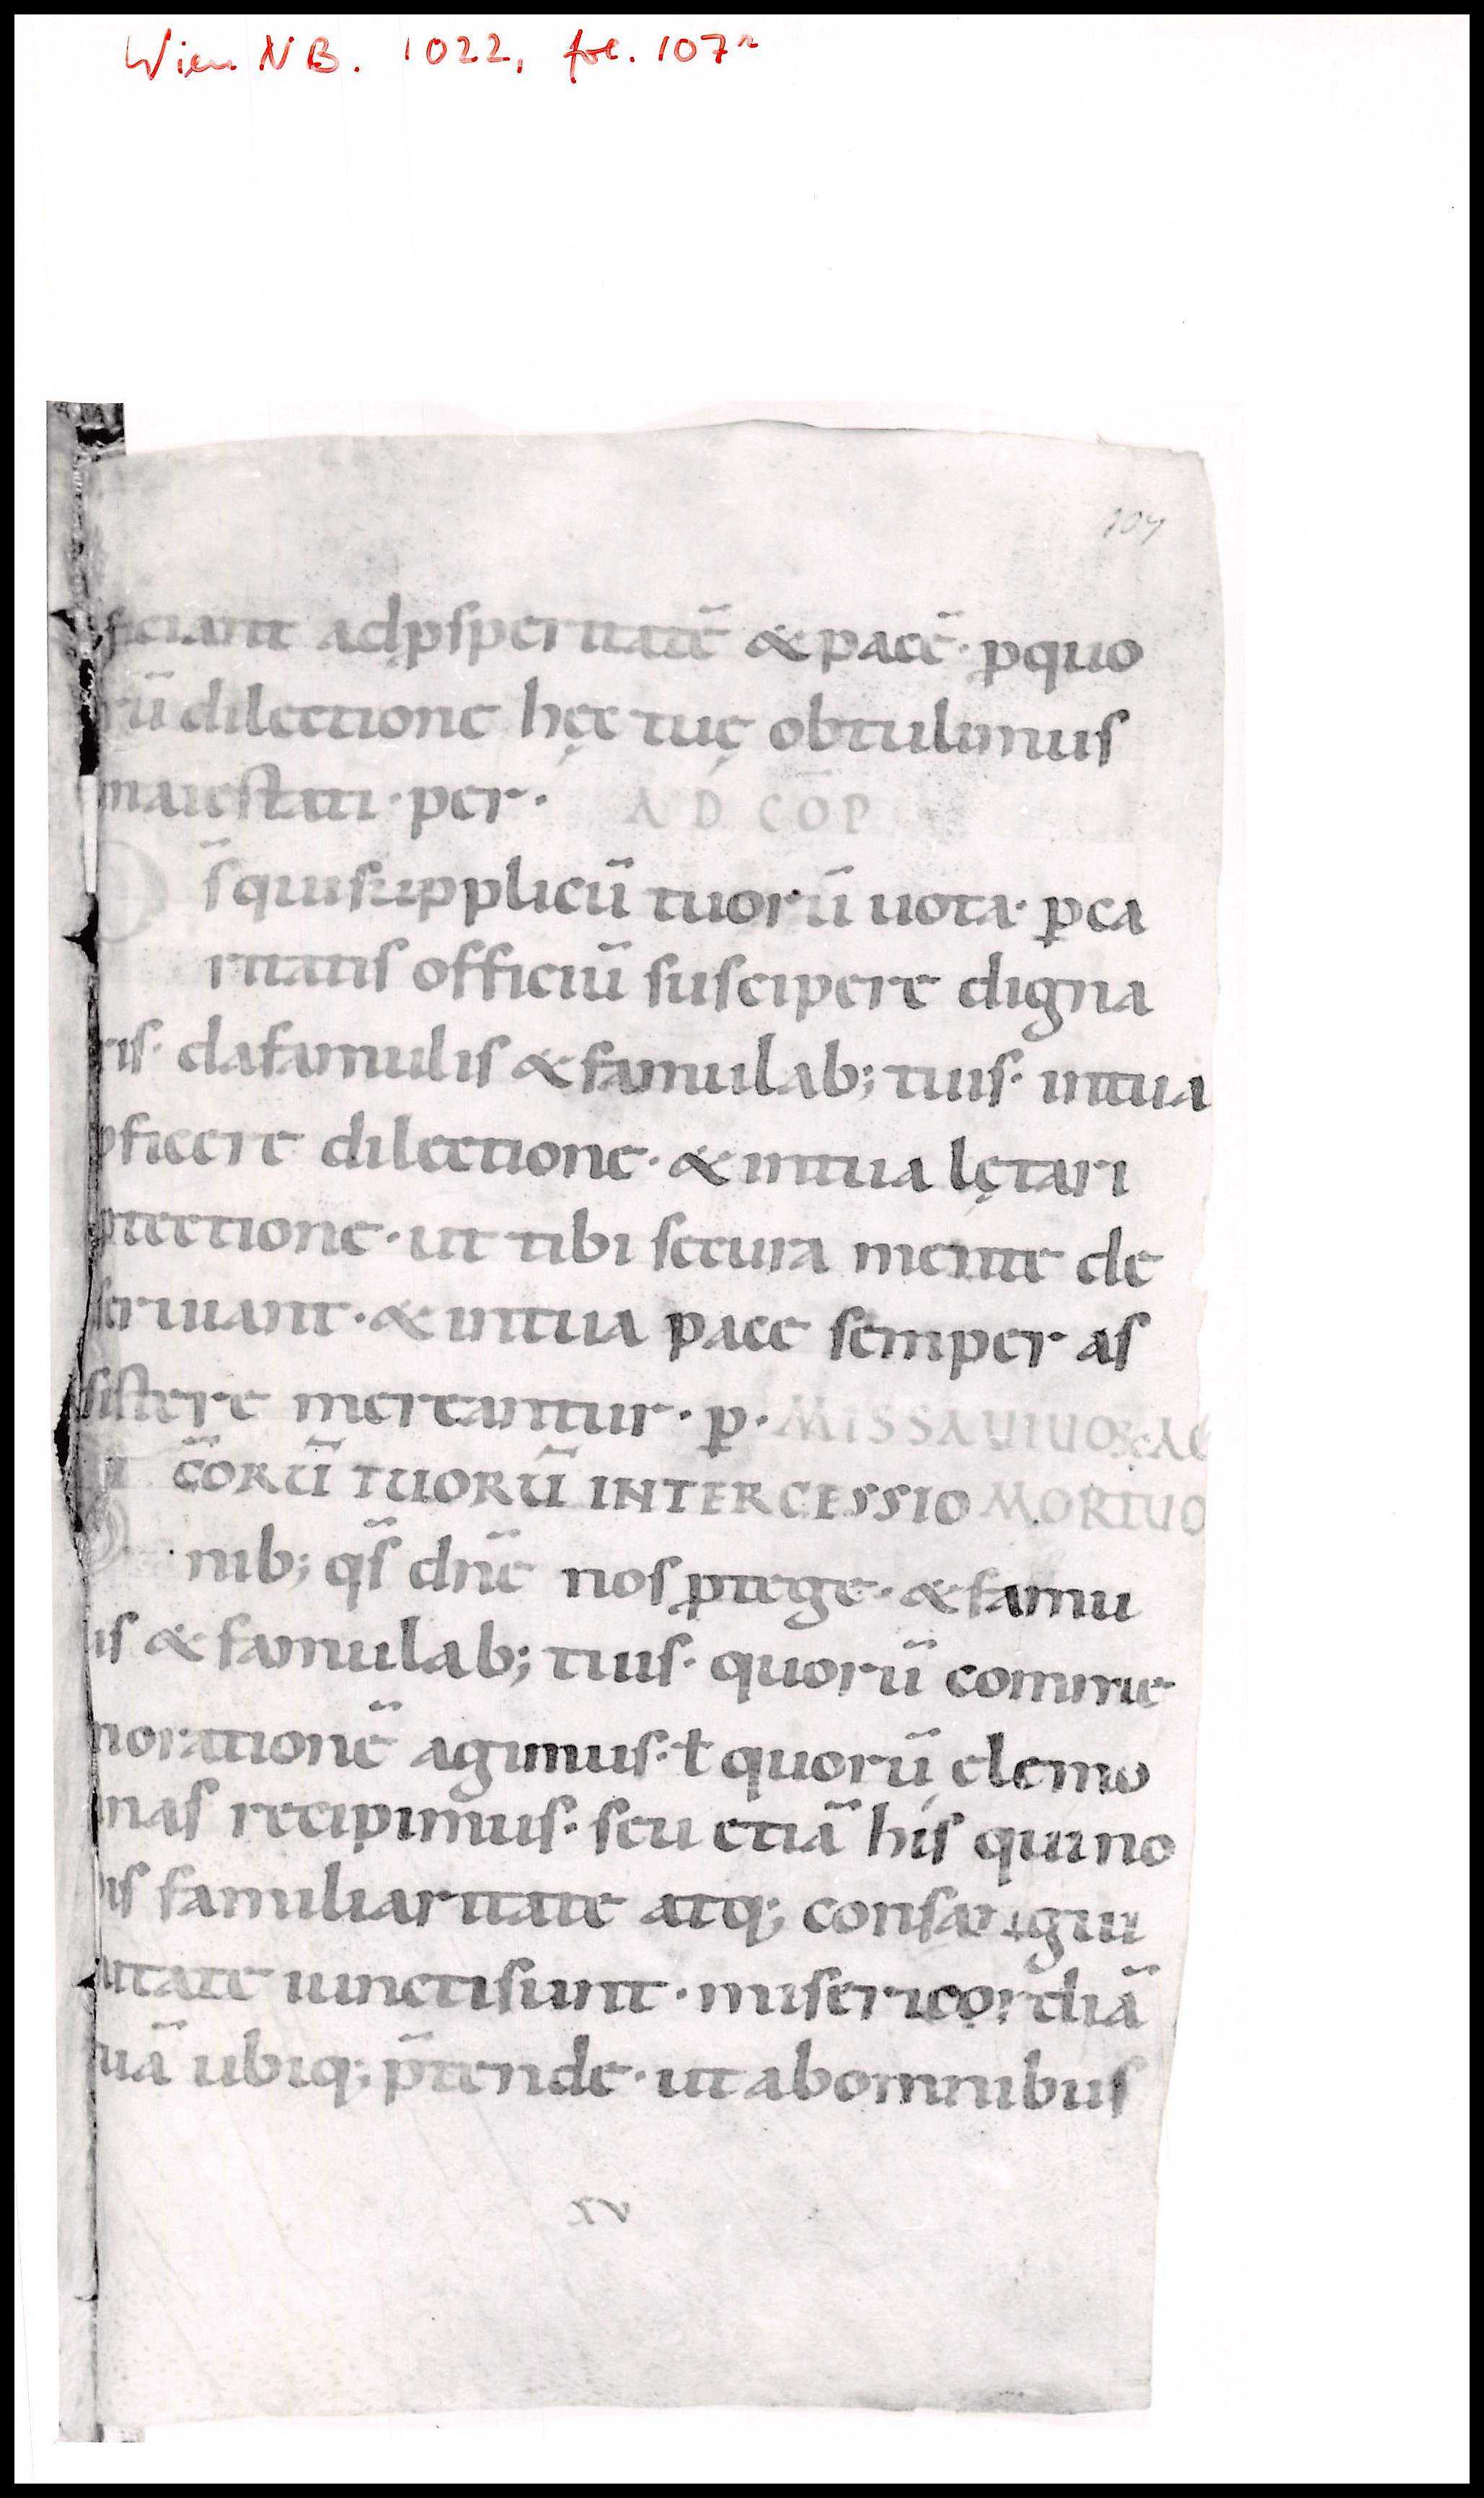 Wien NB. 1022, fol. 107r
107
ficiant adp̱speritatē & pacē· p̱quo
rū dilectione hęc tuę obtulimus
maiestati· per· AD COP̄
D s̄ qui supplicū tuorū uota· p̱ca
ritatis officiū suscipere digna
ris· da famulis & famulab; tuis· in tua
p̱ficere dilectione· & in tua lętari
p̱tectione· ut tibi secura mente de
seruiant· & in tua pace semper as
sistere mereantur· p̱· MISSA UIUOR̄ AC
c̄ORŪ TUORŪ INTERCESSIO MORTUO
nib; qs̄ dn̄e nos p̱tege· & famu
lis & famulab; tuis· quorū comme
morationē agimus· ł quorū elemo
nas recipimus· seu etiā his qui no
bis familiaritate atq; consangui
nitate iuncti sunt· misericordiā
tuā ubiq; p̄tende· ut ab omnibus
xv